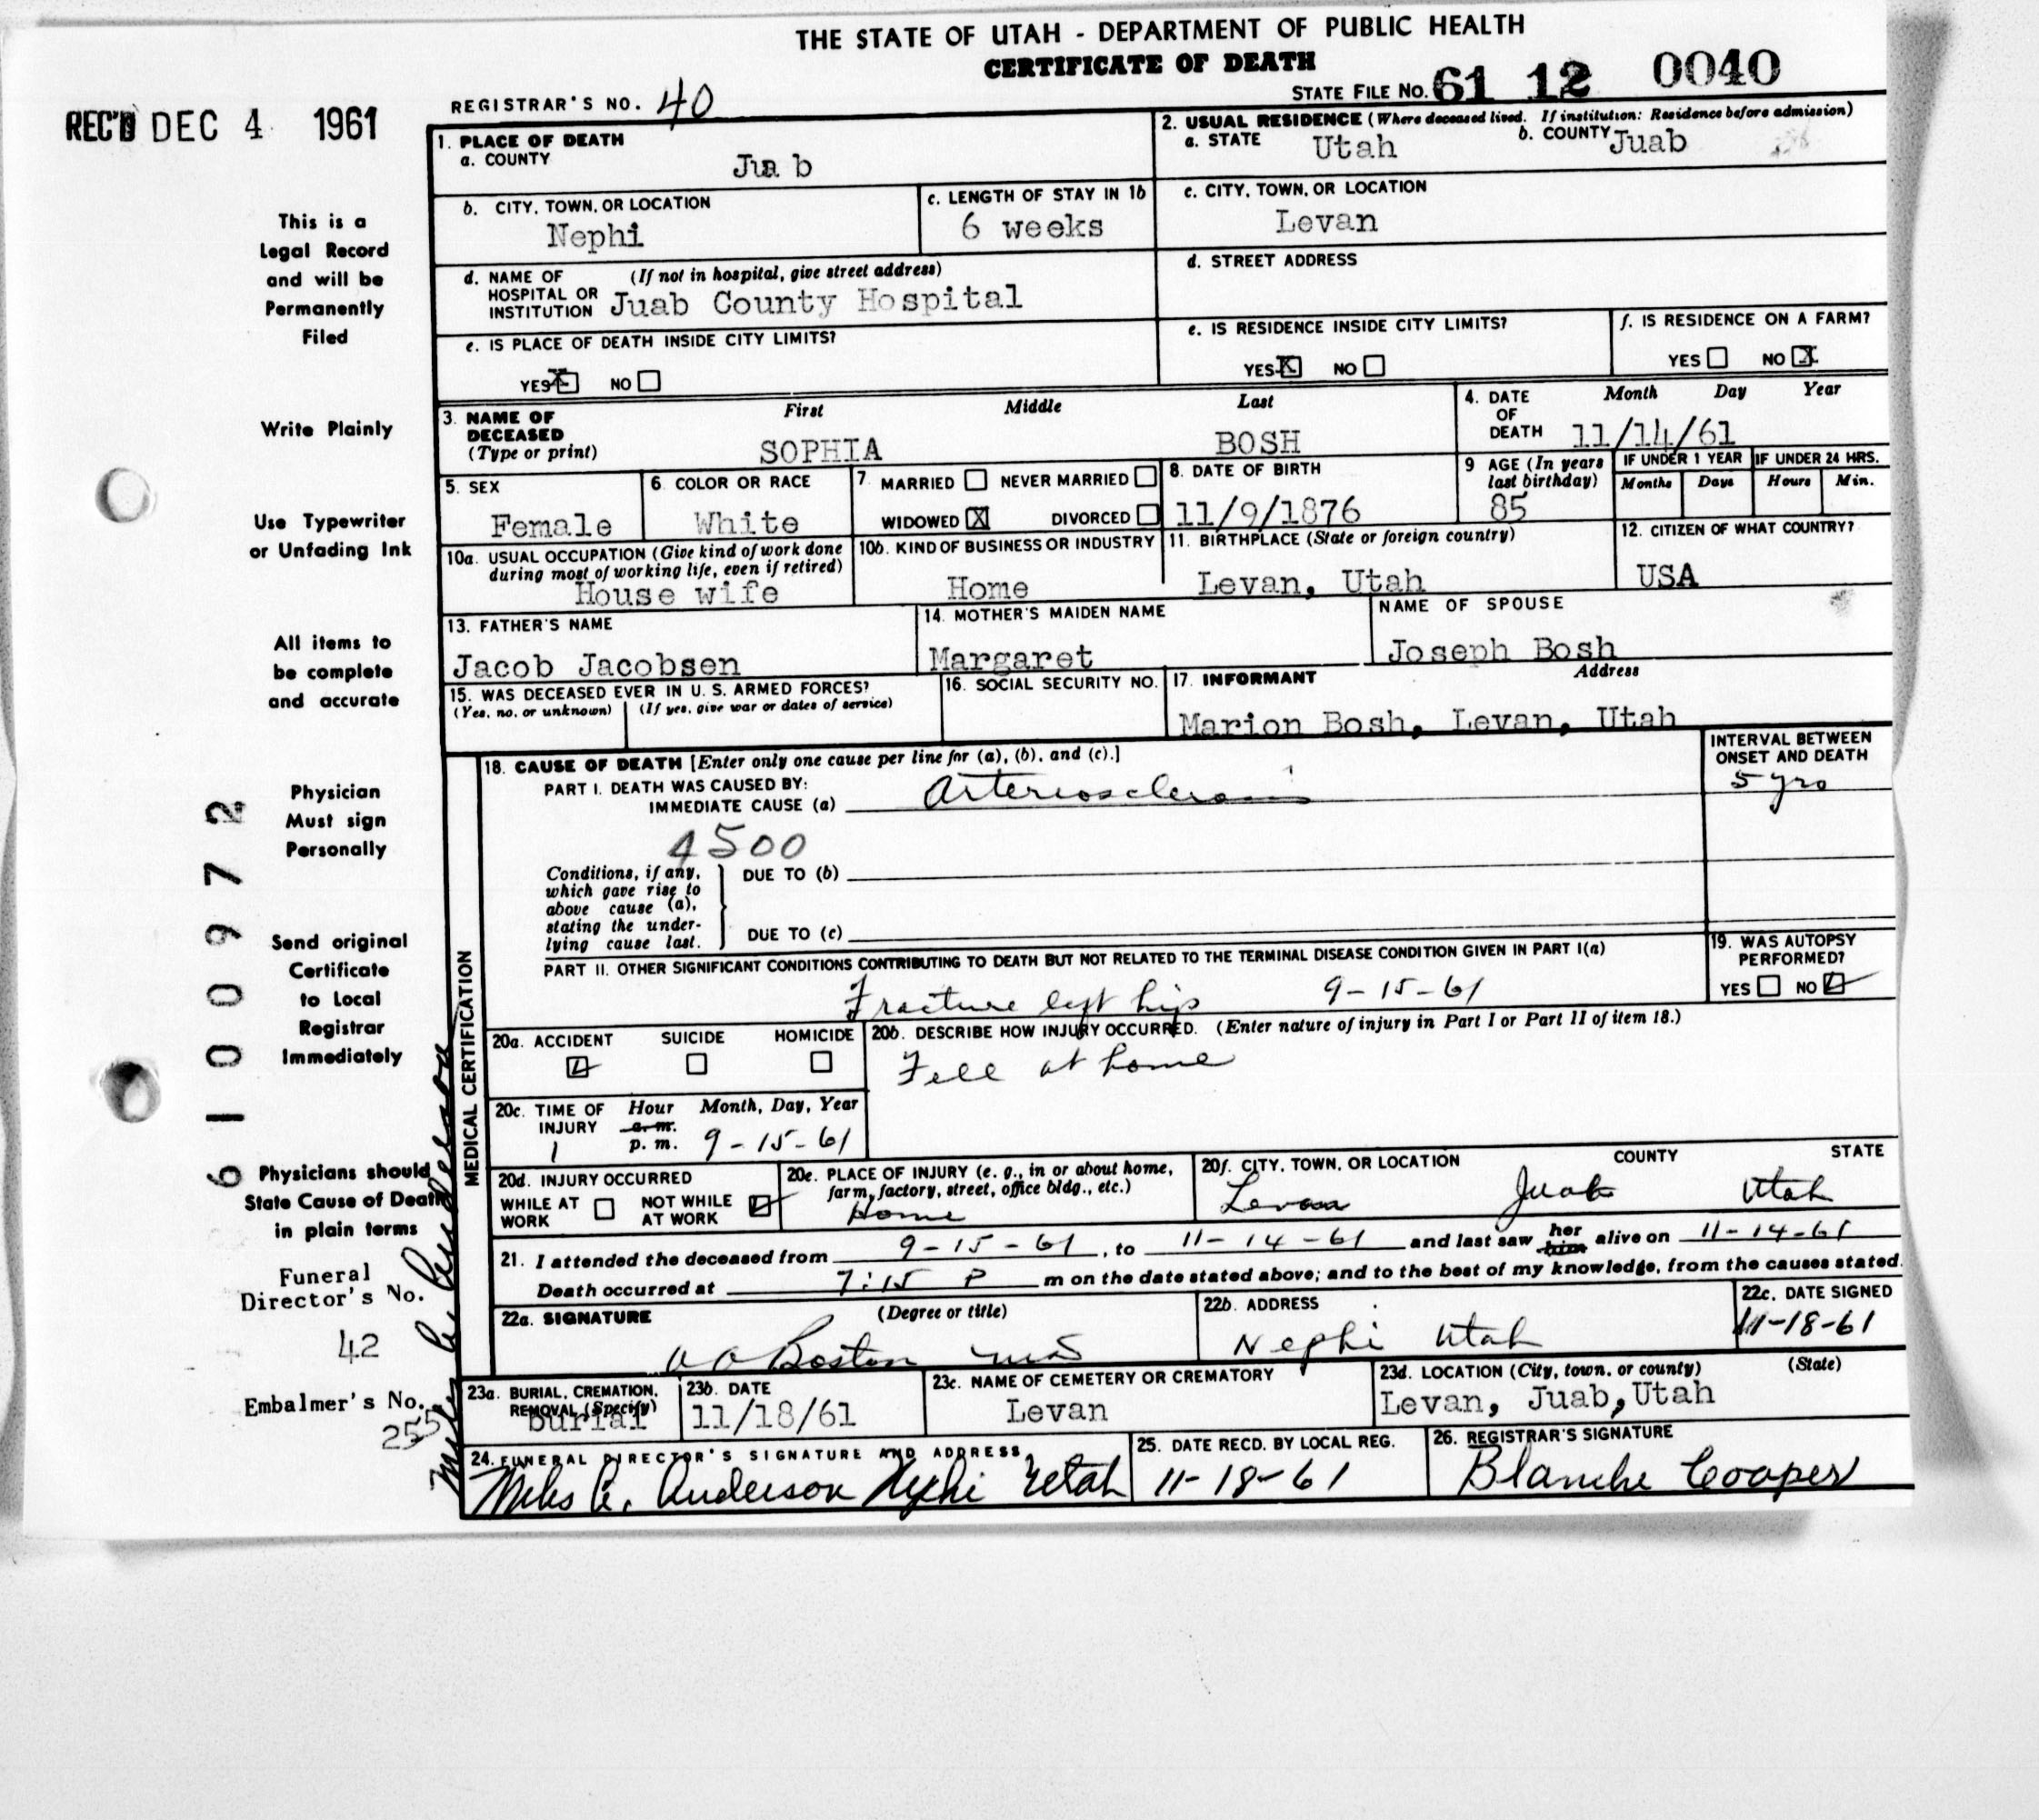 THE STATE OF UTAH - DEPARTMENT OF PUBLIC HEALTH
CERTIFICATE OF DEATH
STATE FILE No. 61 12 0040
REGISTRAR'S NO. 40
REC'D DEC 4 1961
1. PLACE OF DEATH
a. COUNTY
Juab
2. USUAL RESIDENCE (Where deceased lived. If institution: Residence before admission)
a. STATE Utah b. COUNTY Juab
b. CITY, TOWN, OR LOCATION
Nephi
c. LENGTH OF STAY IN 1b
6 weeks
c. CITY, TOWN, OR LOCATION
Levan
d. NAME OF (If not in hospital, give street address)
HOSPITAL OR
INSTITUTION Juab County Hospital
d. STREET ADDRESS
e. IS PLACE OF DEATH INSIDE CITY LIMITS?
YES X NO
e. IS RESIDENCE INSIDE CITY LIMITS?
YES X NO
f. IS RESIDENCE ON A FARM?
YES NO X
3. NAME OF
DECEASED
(Type or print)
First Middle Last
SOPHIA BOSH
4. DATE
OF
DEATH
Month Day Year
11/14/61
5. SEX
Female
6. COLOR OR RACE
White
7. MARRIED NEVER MARRIED
WIDOWED X DIVORCED
8. DATE OF BIRTH
11/9/1876
9 AGE (In years
last birthday)
85
IF UNDER 1 YEAR
Months Days
IF UNDER 24 HRS.
Hours Min.
10a. USUAL OCCUPATION (Give kind of work done
during most of working life, even if retired)
House wife
10b. KIND OF BUSINESS OR INDUSTRY
Home
11. BIRTHPLACE (State or foreign country)
Levan, Utah
12. CITIZEN OF WHAT COUNTRY?
USA
13. FATHER'S NAME
Jacob Jacobsen
14. MOTHER'S MAIDEN NAME
Margaret
NAME OF SPOUSE
Joseph Bosh
15. WAS DECEASED EVER IN U. S. ARMED FORCES?
(Yes, no, or unknown) (If yes, give war or dates of service)
16. SOCIAL SECURITY NO.
17. INFORMANT Address
Marion Bosh, Levan, Utah
MEDICAL CERTIFICATION
18. CAUSE OF DEATH [Enter only one cause per line for (a), (b), and (c).]
PART I. DEATH WAS CAUSED BY:
IMMEDIATE CAUSE (a) Arteriosclerosis
INTERVAL BETWEEN
ONSET AND DEATH
5 yrs
4500
Conditions, if any,
which gave rise to
above cause (a),
stating the under-
lying cause last.
DUE TO (b)
DUE TO (c)
PART II. OTHER SIGNIFICANT CONDITIONS CONTRIBUTING TO DEATH BUT NOT RELATED TO THE TERMINAL DISEASE CONDITION GIVEN IN PART I(a)
Fracture left hip 9-15-61
19. WAS AUTOPSY
PERFORMED?
YES NO
20a. ACCIDENT SUICIDE HOMICIDE
20b. DESCRIBE HOW INJURY OCCURRED. (Enter nature of injury in Part I or Part II of item 18.)
Fell at home
20c. TIME OF Hour Month, Day, Year
INJURY a. m.
1 p. m. 9-15-61
20d. INJURY OCCURRED
WHILE AT NOT WHILE
WORK AT WORK
20e. PLACE OF INJURY (e. g., in or about home,
farm, factory, street, office bldg., etc.)
Home
20f. CITY, TOWN, OR LOCATION COUNTY STATE
Levan Juab Utah
21. I attended the deceased from 9-15-61, to 11-14-61 and last saw her him alive on 11-14-61
Death occurred at 7:15 P m on the date stated above; and to the best of my knowledge, from the causes stated.
22a. SIGNATURE (Degree or title)
Boston MD
22b. ADDRESS
Nephi Utah
22c. DATE SIGNED
11-18-61
23a. BURIAL, CREMATION,
REMOVAL (Specify)
burial
23b. DATE
11/18/61
23c. NAME OF CEMETERY OR CREMATORY
Levan
23d. LOCATION (City, town, or county) (State)
Levan, Juab, Utah
24. FUNERAL DIRECTOR'S SIGNATURE AND ADDRESS
Miles A. Anderson Nephi Utah
25. DATE RECD. BY LOCAL REG.
11-18-61
26. REGISTRAR'S SIGNATURE
Blanche Cooper
This is a
Legal Record
and will be
Permanently
Filed
Write Plainly
Use Typewriter
or Unfading Ink
All items to
be complete
and accurate
Physician
Must sign
Personally
Send original
Certificate
to Local
Registrar
Immediately
Physicians should
State Cause of Death
in plain terms
Funeral
Director's No.
42
Embalmer's No.
255
Miles A. Anderson
6100972